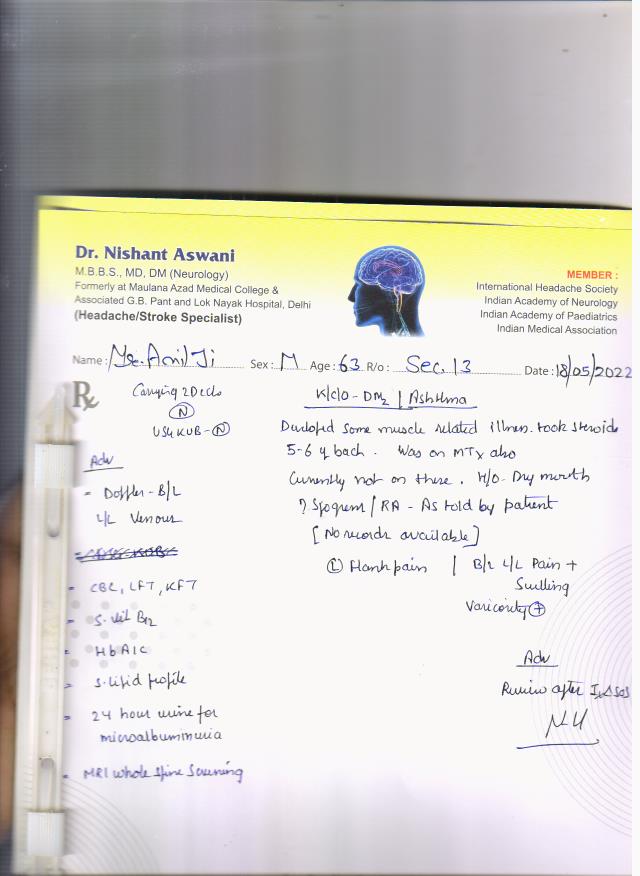 Dr. Nishant Aswani
M.B.B.S., MD, DM (Neurology)
Formerly at Maulana Azad Medical College &
Associated G.B. Pant and Lok Nayak Hospital, Delhi
(Headache/Stroke Specialist)
MEMBER :
International Headache Society
Indian Academy of Neurology
Indian Academy of Paediatrics
Indian Medical Association
Name: Mr. Anil Ji Sex: M Age: 63 R/o: Sec. 13 Date: 18/05/2022
Rx
Carrying 2D echo
(N)
USG KUB - (N)
Adv
- Doppler - B/L
L/L Venous
- CBC, LFT, KFT
- S. Vit B12
- HbA1C
- S. lipid profile
- 24 hour urine for
microalbuminuria
- MRI whole spine screening
K/C/O - DM2 / Asthma
Developed some muscle related illness. took steroids
5-6 y back. Was on MTx also
Currently not on these. H/O - Dry mouth
? Sjogren / RA - As told by patient
[No records available]
(L) Flank pain | B/L L/L Pain +
Swelling
Varicosity (+)
Adv
Review after